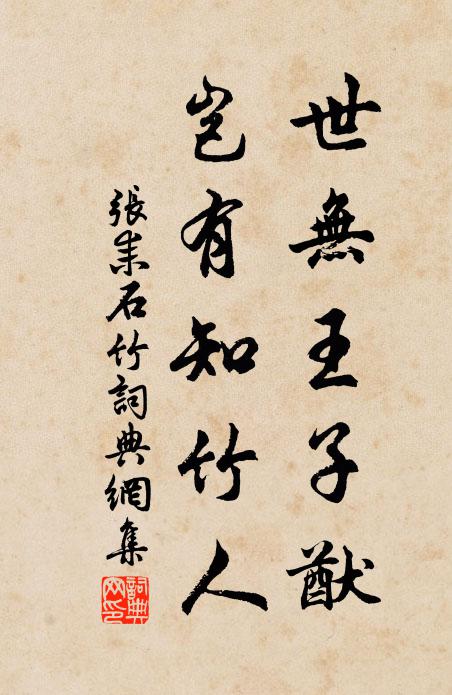 世無王子猷
豈有知竹人
張耒石竹詞典網集
詞典網印